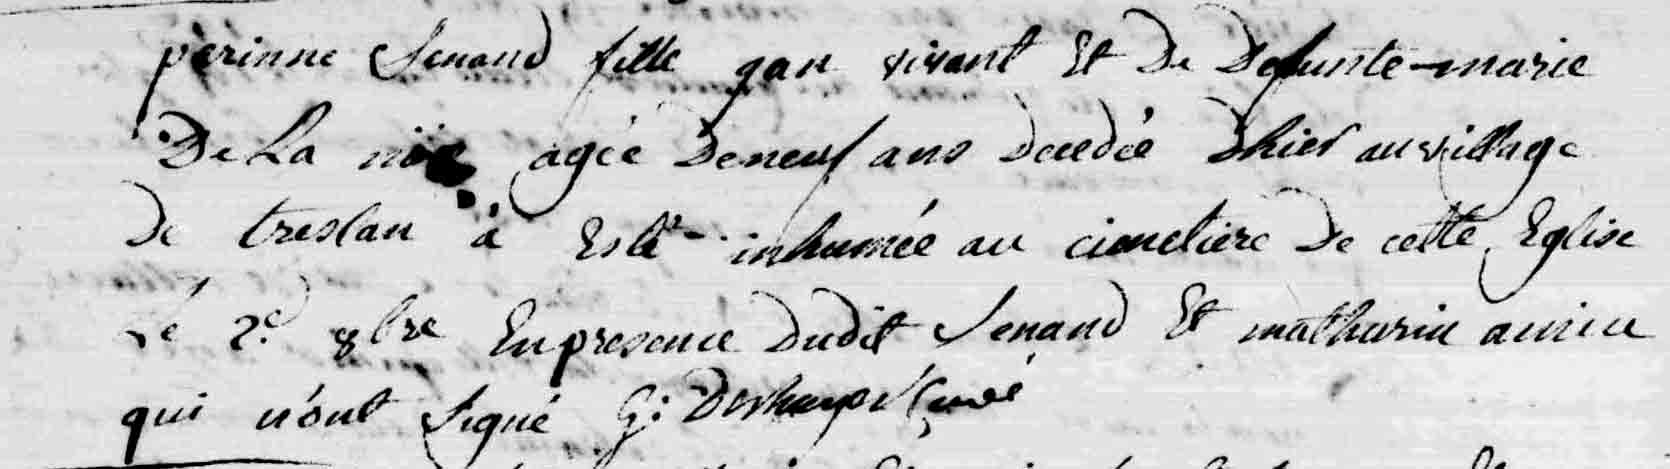 perinne Senand fille jan vivant Et De Defunte marie
De La noe agée De neuf ans Decedée Dhier au village
De treslan à Esté inhumée au cimetiere De cette Eglise
Le 2.e 8bre En presence Dudit Senand Et mathurin
qui n'ont Signé G: Curé